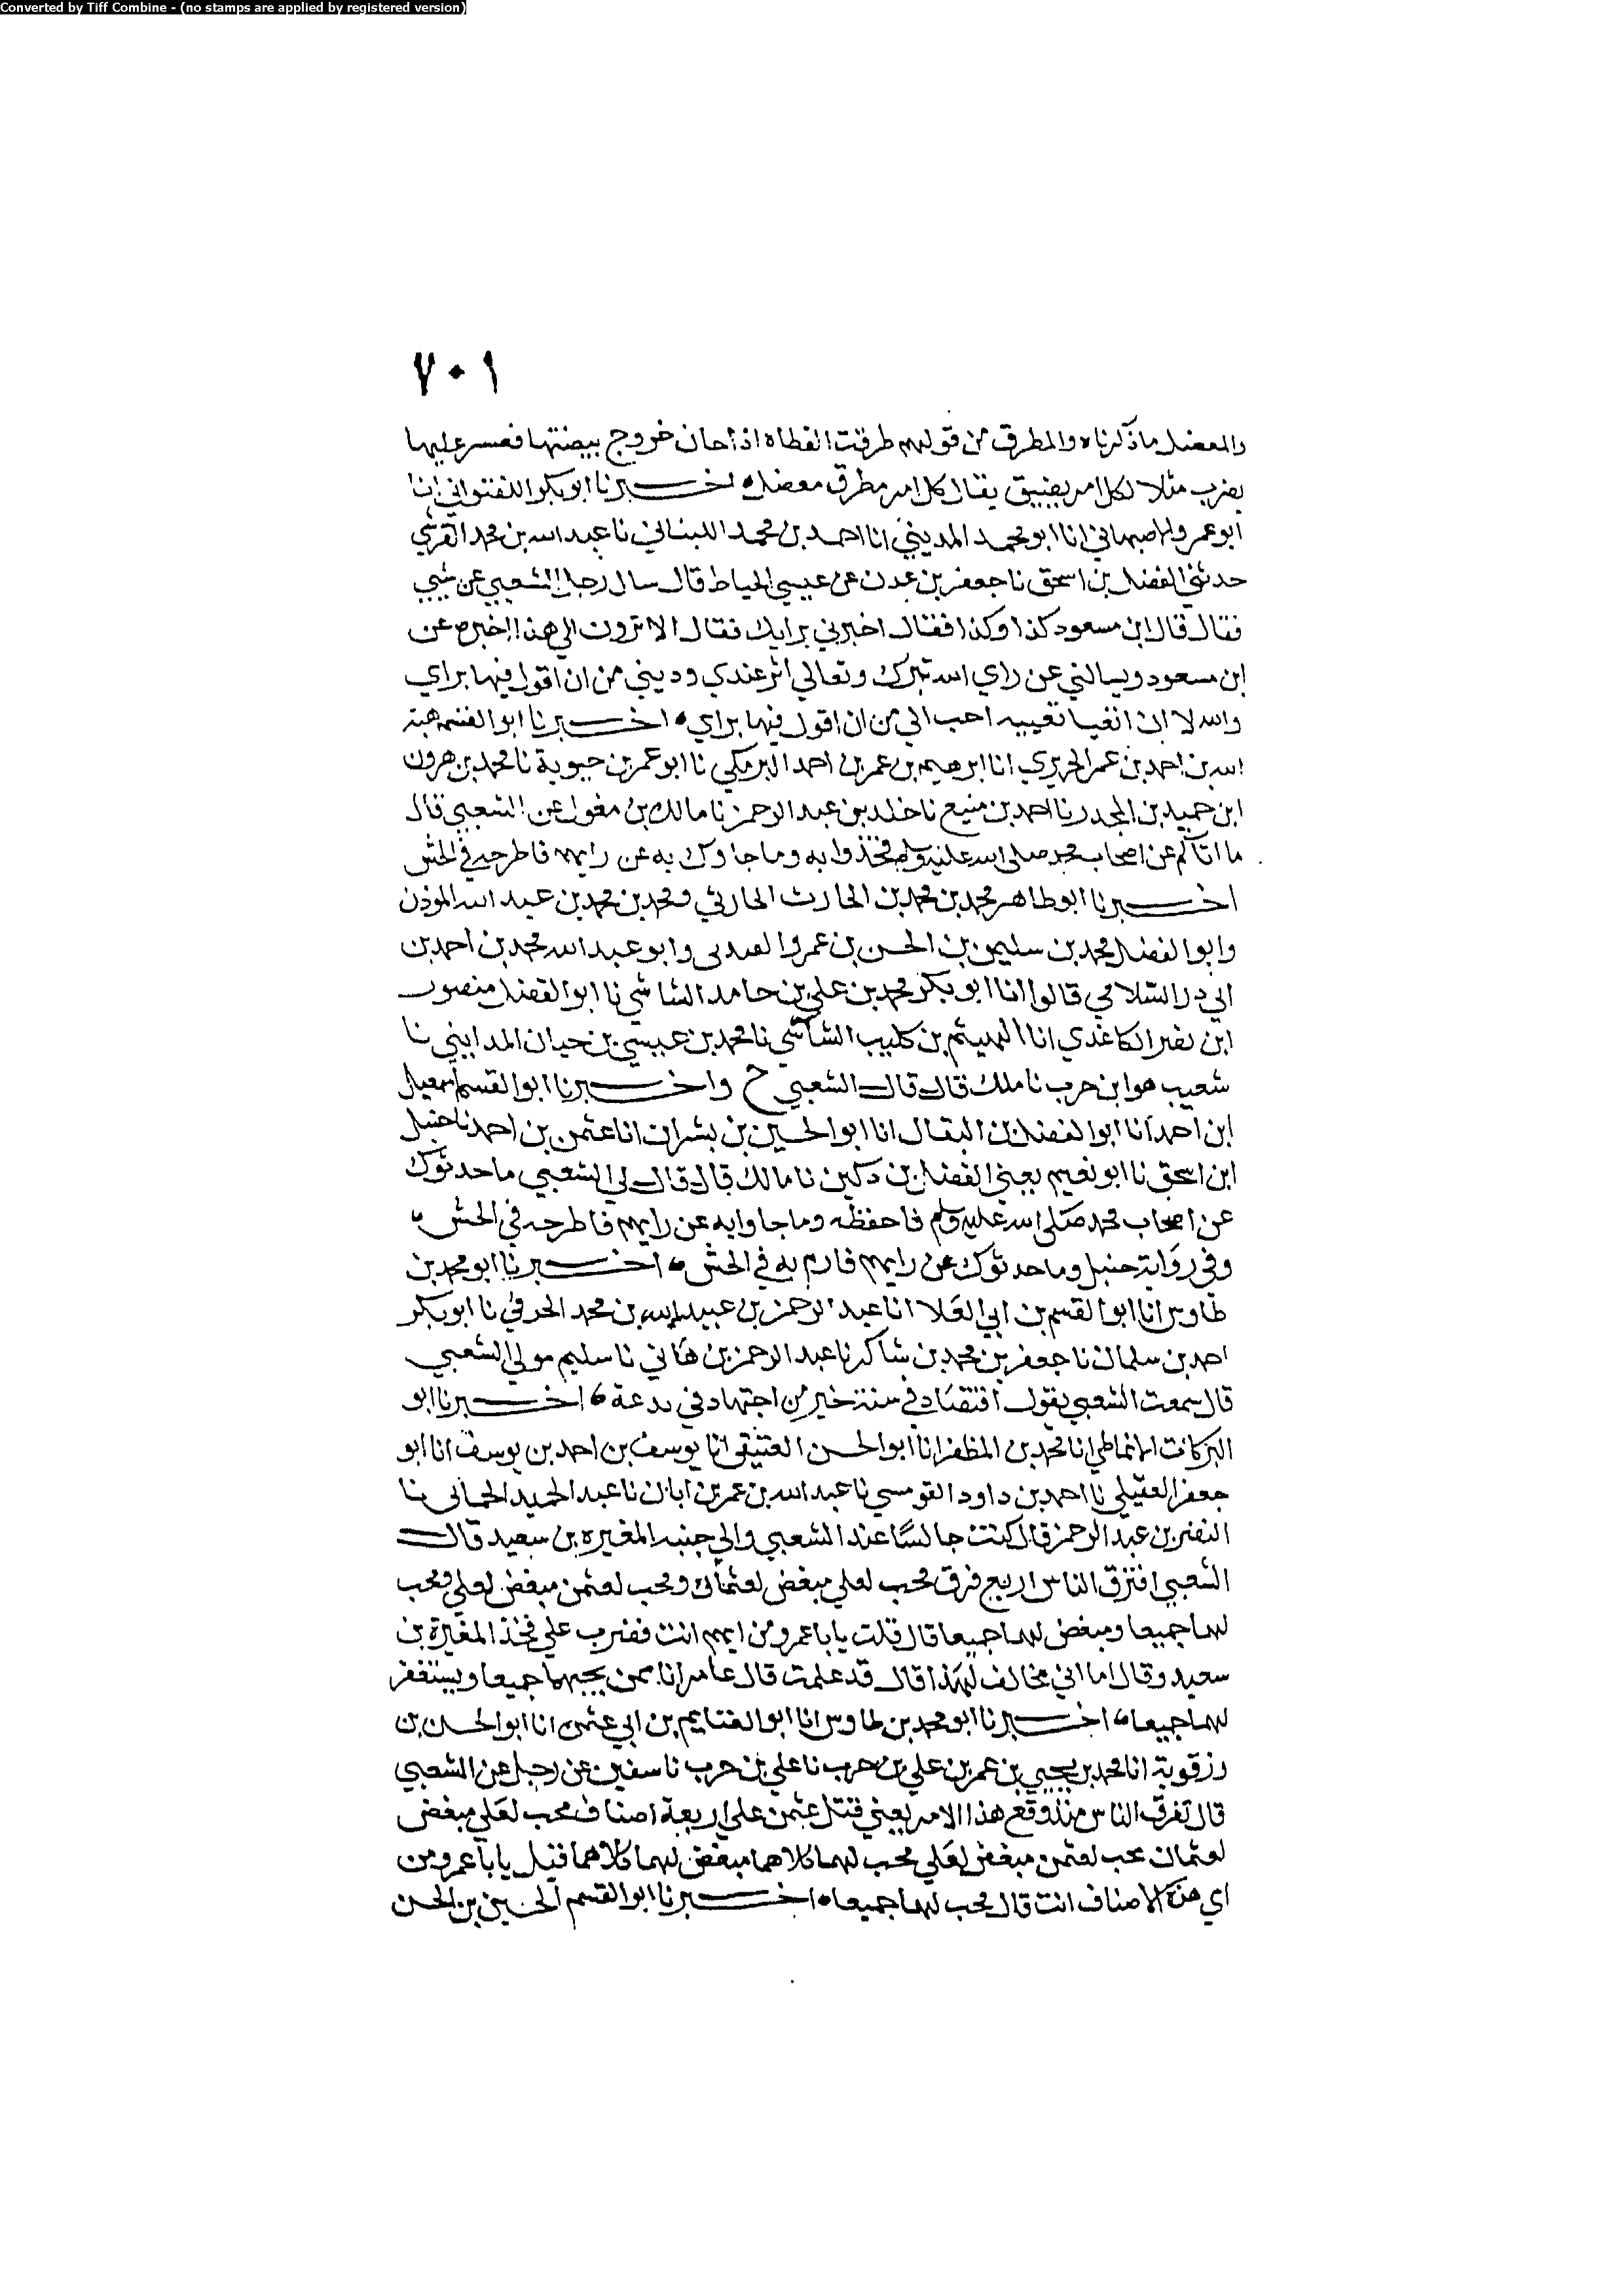 Converted by Tiff Combine - (no stamps are applied by registered version)
٧٠١
والمعضل ما ذكرناه والمطرق من قولهم طرقت القطاه اذا حان خروج بيضتها فعسر عليها
يضرب مثلا لكل امر يضيق يقال كل امر مطرق معضل اخبرنا ابو بكر اللفتواني انا
ابو عمرو الاصبهاني انا ابو محمد المديني انا احمد بن محمد اللبناني نا عبد الله بن محمد القرشي
حدثني الفضل بن اسحق نا جعفر بن عون عن عيسي الحناط قال سال رجل الشعبي عن شيي
فقال قال ابن مسعود كذا وكذا فقال اخبرني برايك فقال الا ترون الي هذا اخبره عن
ابن مسعود ويسالني عن راي الله تبرك وتعالي اثر عندي وديني من ان اقول فيها براي
والله لان اتغنا تغنيه احب الي من ان اقول فيها براي اخبرنا ابو القسم هبة
الله بن احمد بن عمر الحريري انا ابرهيم بن عمر بن احمد البرمكي نا ابو عمر بن حيوية نا محمد بن هرون
ابن حميد بن المجدر نا احمد بن منيع نا خلد بن عبد الرحمن نا مالك بن مغول عن الشعبي قال
ما اتاكم عن اصحاب محمد صلى الله عليه وسلم فخذوا به وما جاوك به عن رايهم فاطرحه في الحش
اخبرنا ابو طاهر محمد بن محمد بن الحارث الحارثي ومحمد بن محمد بن عبد الله الموذن
وابو الفضل محمد بن سليمن بن الحسن بن عمرو وابو عبد الله محمد بن احمد بن
ابي ذر السلامي قالوا انا ابو بكر محمد بن علي بن حامد الشاشي نا ابو الفضل منصور
ابن نصر الكاغدي انا الهيثم بن كليب الشاشي نا محمد بن عيسي بن حيان المدايني نا
شعيب هو ابن حرب نا ملك قال قال الشعبي ح واخبرنا ابو القسم اسمعيل
ابن احمد انا ابو الفضل بن البقال انا ابو الحسين بن بشران انا عثمن بن احمد نا حنبل
ابن اسحق نا ابو نعيم يعني الفضل بن دكين نا مالك قال قال لي الشعبي ما حدثوك
عن اصحاب محمد صلى الله عليه وسلم فاحفظه وما جاوا به عن رايهم فاطرحه في الحش
وفي رواية حنبل وما حدثوك عن رايهم فارم به في الحش اخبرنا ابو محمد بن
طاوس انا ابو القسم بن ابي العلا انا عبد الرحمن بن عبيد الله بن محمد الحرفي نا ابو بكر
احمد بن سلمان نا جعفر بن محمد بن شاكر نا عبد الرحمن بن هاني نا سليم مولي الشعبي
قال سمعت الشعبي يقول اقتصاد في سنة خير من اجتهاد في بدعة اخبرنا ابو
البركات الانماطي انا محمد بن المظفر انا ابو الحسن العتيقي انا يوسف بن احمد بن يوسف انا ابو
جعفر العقيلي نا احمد بن داود القومسي نا عبد الله بن عمر بن ابان نا عبد الحميد الحماني نا
النضر بن عبد الرحمن قال كنت جالسا عند الشعبي والي جنبه المغيره بن سعيد قال
الشعبي افترق الناس اربع فرق محب لعلي مبغض لعثمان ومحب لعثمن مبغض لعلي ومحب
لهما جميعا ومبغض لهما جميعا قال قلت يا با عمرو من ايهم انت فضرب علي فخذ المغيرة بن
سعيد وقال اما اني مخالف لهذا قال قد علمت قال عامر انا ممن يحبهما جميعا ويستغفر
لهما جميعا اخبرنا ابو محمد بن طاوس انا ابو الغنايم بن ابي عثمن انا ابو الحسن بن
رزقوية انا محمد بن يحيي بن عمر بن علي بن حرب نا علي بن حرب نا سفين عن رجل عن الشعبي
قال تفرق الناس منذ وقع هذا الامر يعني قتل عثمن علي اربعة اصناف محب لعلي مبغض
لعثمان محب لعثمن مبغض لعلي محب لهما كلاهما مبغض لهما كلاهما قيل يا با عمرو من
اي هذه الاصناف انت قال محب لهما جميعا اخبرنا ابو القسم الحسين بن الحسن